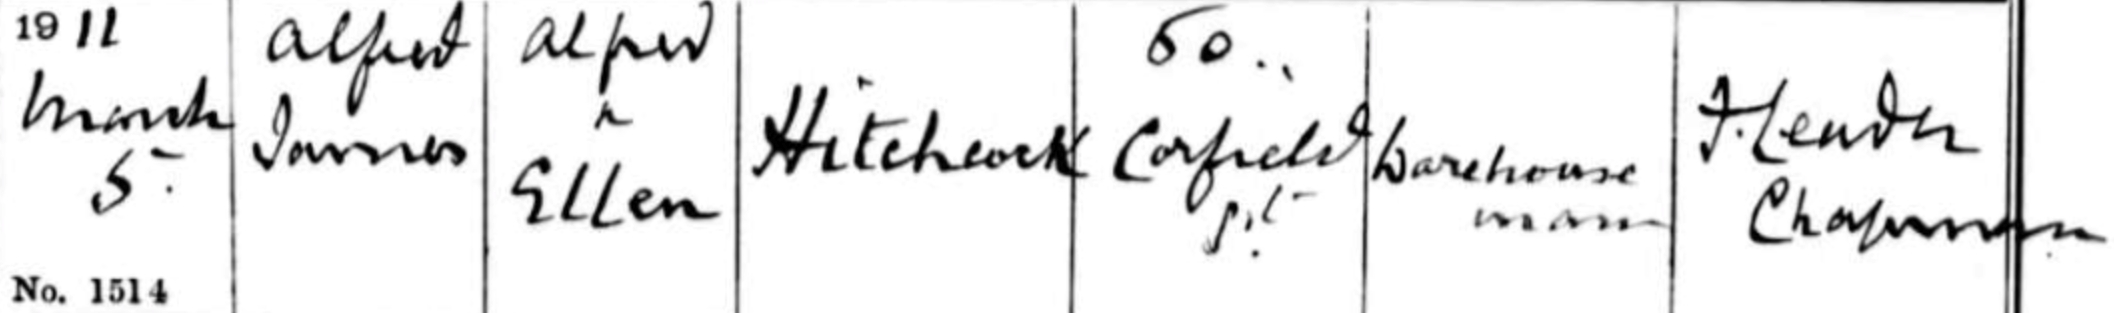 1911
March
5.
No. 1514
Alfred
James
Alfred
&
Ellen
Hitchcock
50..
Corfield
St
Warehouse
man
F. Leader
Chapman